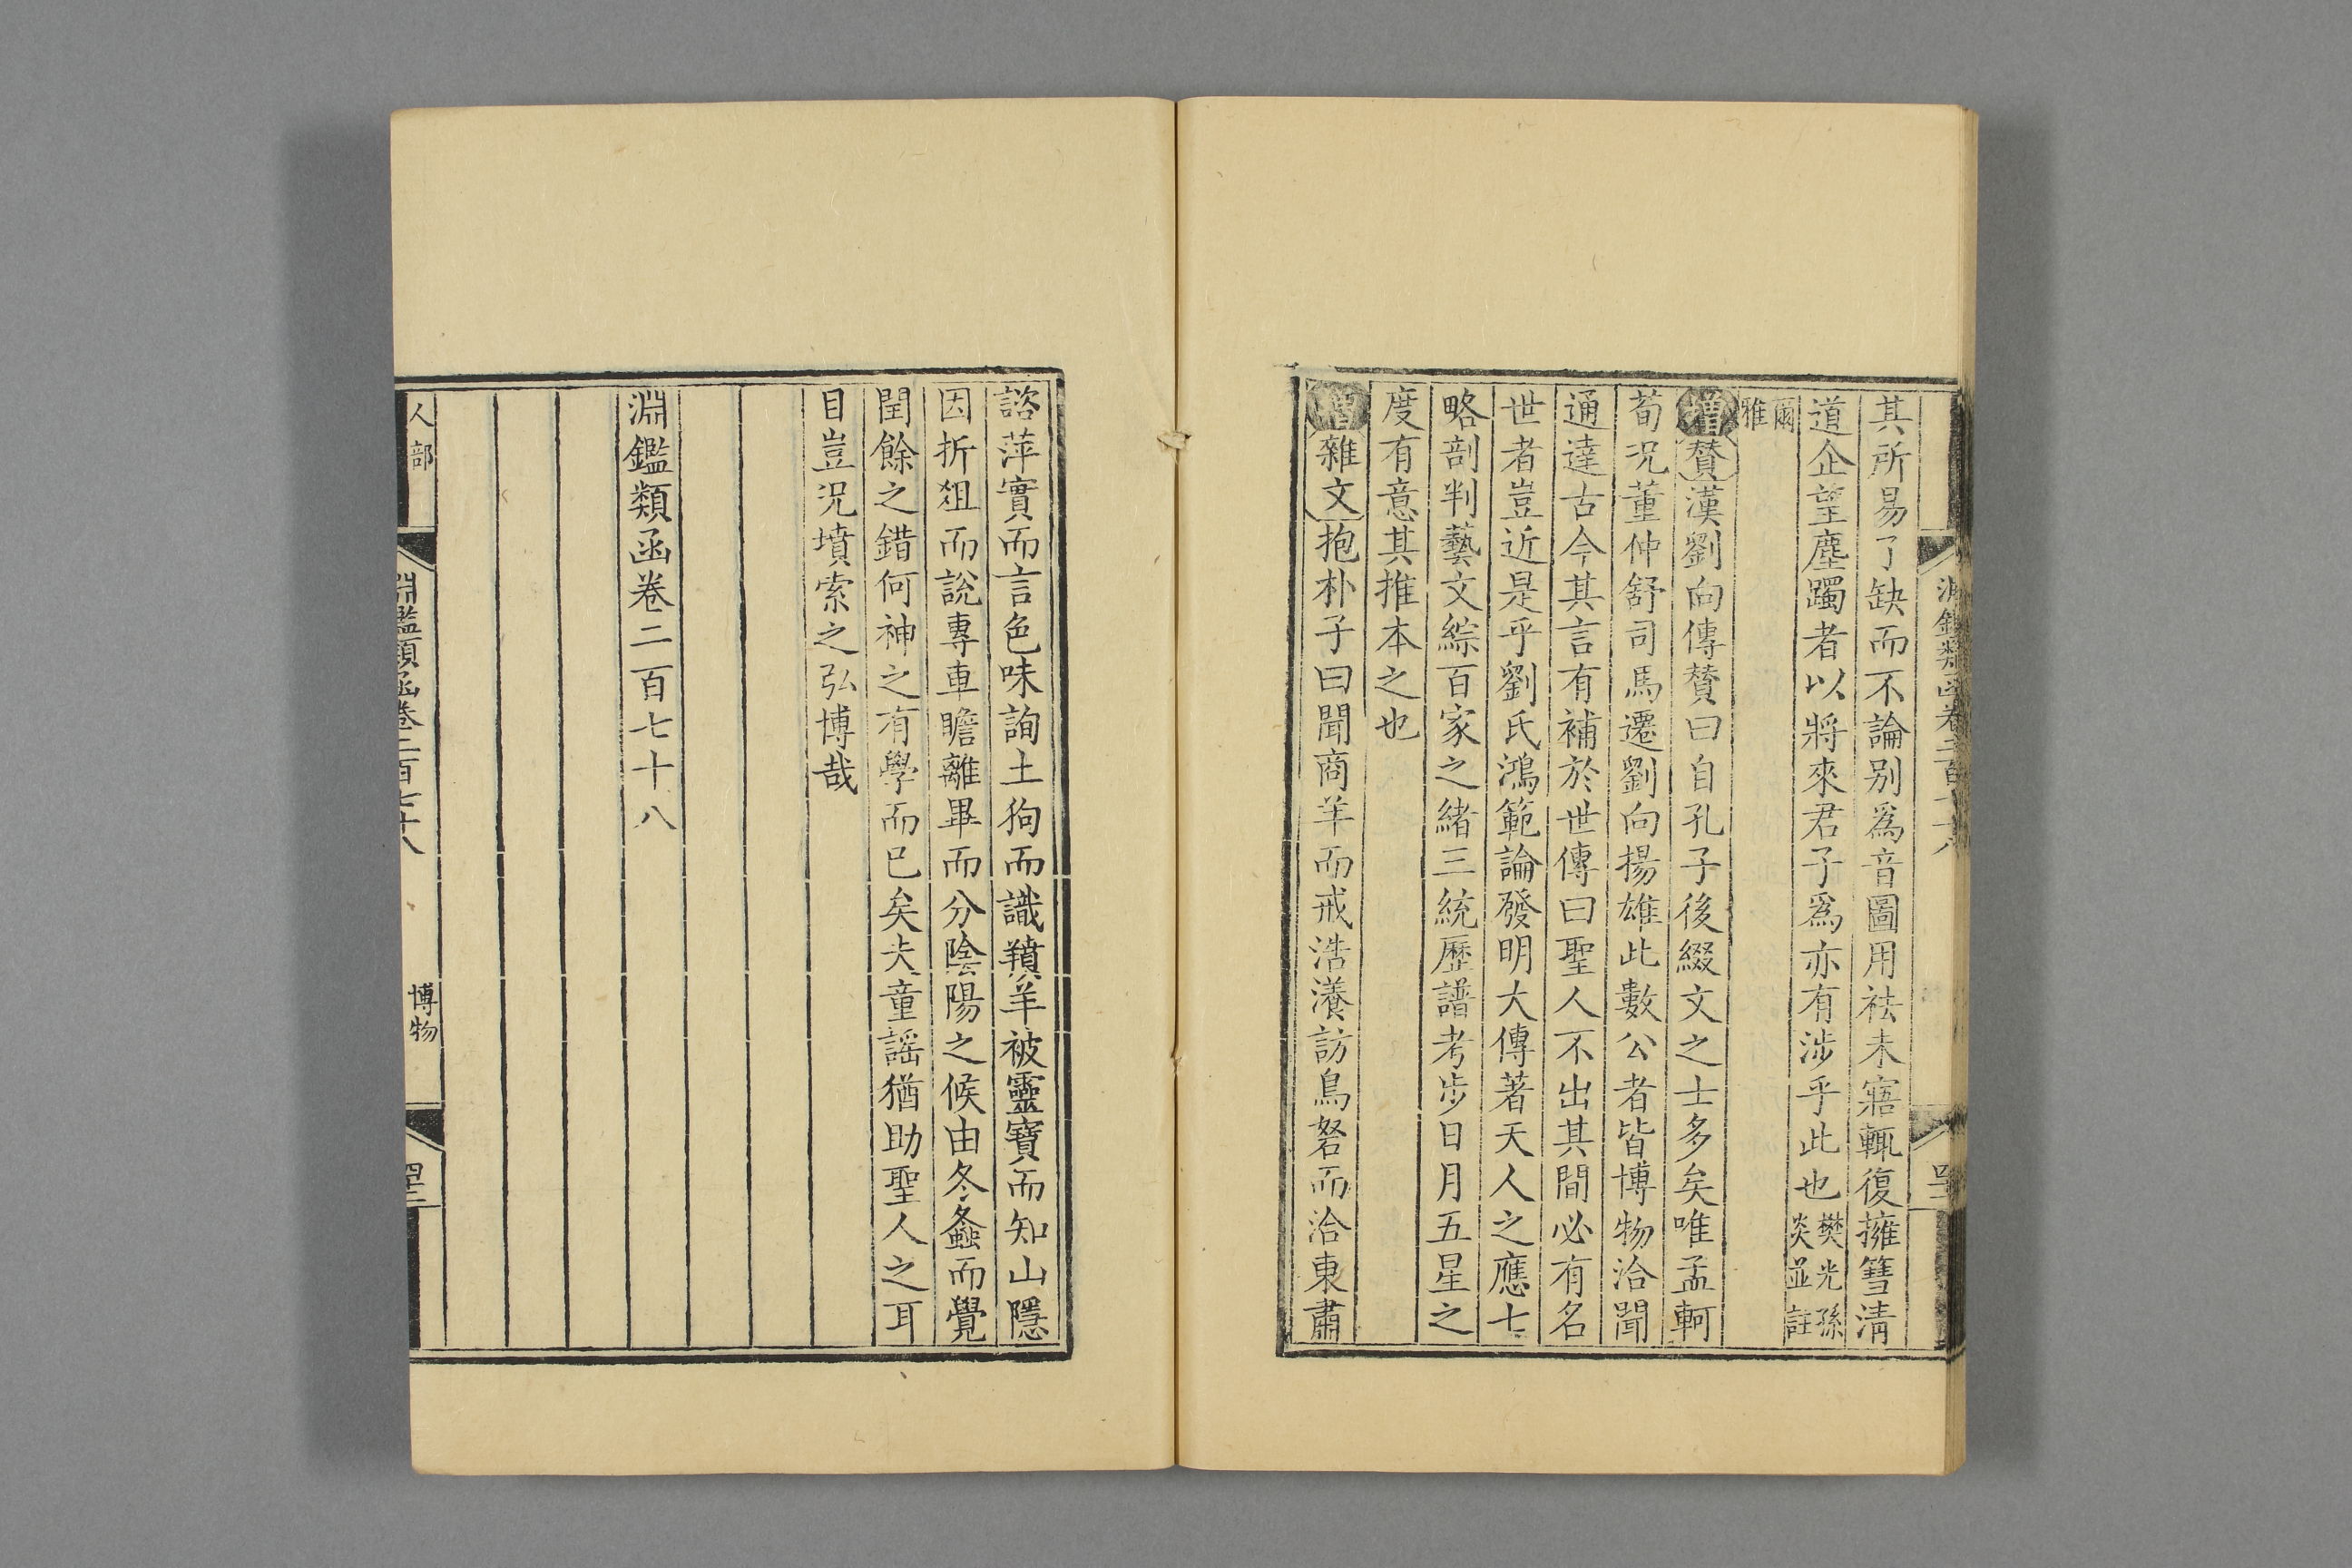 其所易了缺而不論别爲音圖用袪未寤輒復擁篲清
道企望塵躅者以將來君子爲亦有涉乎此也樊光孫炎並註
爾雅
增贊漢劉向傳贊曰自孔子後綴文之士多矣唯孟軻
荀况董仲舒司馬遷劉向揚雄此數公者皆博物洽聞
通達古今其言有補於世傳曰聖人不出其間必有名
世者豈近是乎劉氏鴻範論發明大傳著天人之應七
略剖判藝文綜百家之緒三統歷譜考步日月五星之
度有意其推本之也
增雜文抱朴子曰聞商羊而戒浩瀁訪鳥砮而洽東肅
諮萍實而言色味詢土狗而識羵羊被靈寶而知山隱
因折俎而說專車瞻離畢而分陰陽之候由冬螽而覺
閏餘之錯何神之有學而已矣夫童謡猶助聖人之耳
目豈况墳索之弘博哉
淵鑑類函卷二百七十八
人部
淵鑑類函卷二百七十八
博物